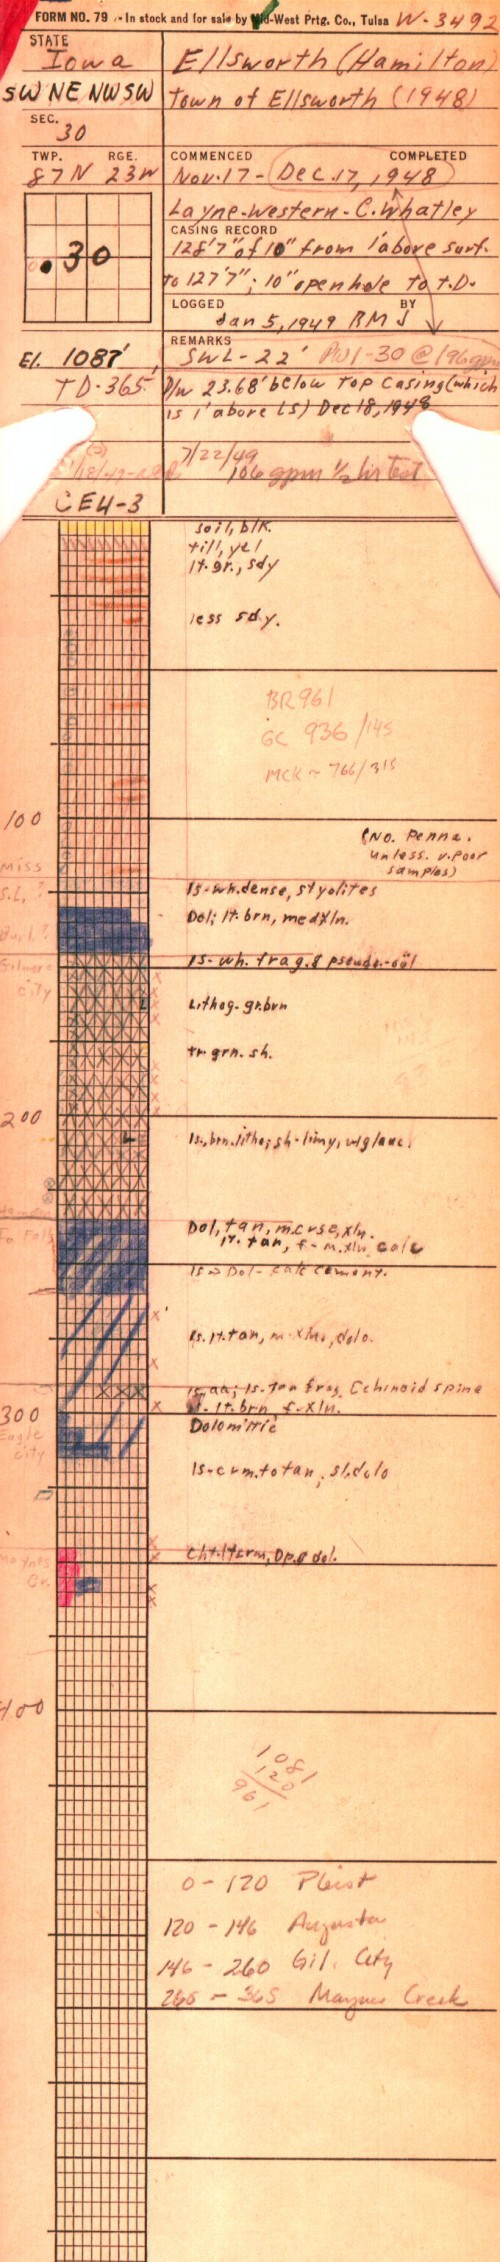 FORM NO. 79 - In stock and for sale by Mid-West Prtg. Co., Tulsa W-3492
STATE
Iowa
Ellsworth (Hamilton)
SW NE NW SW
Town of Ellsworth (1948)
SEC.
30
TWP. RGE.
87N 23W
COMMENCED COMPLETED
Nov. 17 - Dec. 17, 1948
Layne-Western - C. Whatley
CASING RECORD
128'7" of 10" from 1' above surf.
to 127'7"; 10" open hole to T.D.
.30
LOGGED BY
Jan 5, 1949 RMJ
REMARKS
El. 1087'
SWL - 22' PWL-30 @ 196 gpm
TD - 365'
P/W 23.68' below top casing (which
is 1' above LS) Dec 18, 1948
7/22/49
106 gpm 1/2 hr test
CE4-3
soil, blk.
till, yel
lt. gr., sdy
less sdy.
BR 961
GC 936/145
MCK ~ 766/315
100
(No. Penna.
unless v. poor
samples)
Miss
S.L. ?
ls - wh. dense, styolites
Dol; lt. brn, med xln.
Burl. ?
Gilmore
City
ls - wh. frag. & pseudo-oöl
Lithog - gr. brn
tr. grn. sh.
200
ls., brn. litho; sh - limy, w/glauc.
Dol, tan, m. crse, xln.
lt. tan, f - m. xln, calc
Ia Falls
ls → Dol - calc cement.
ls. lt. tan, m. xln, dolo.
ls, aa; ls - tan frag. Echinoid spine
ls - lt. brn f - xln.
300
Dolomitic
Eagle
City
ls - crm. to tan, sl. dolo
Maynes
Cr.
Cht. lt crm, op. & dol.
400
1081
120
961
0 - 120 Pleist
120 - 146 Augusta
146 - 260 Gil. City
260 - 365 Maynes Creek